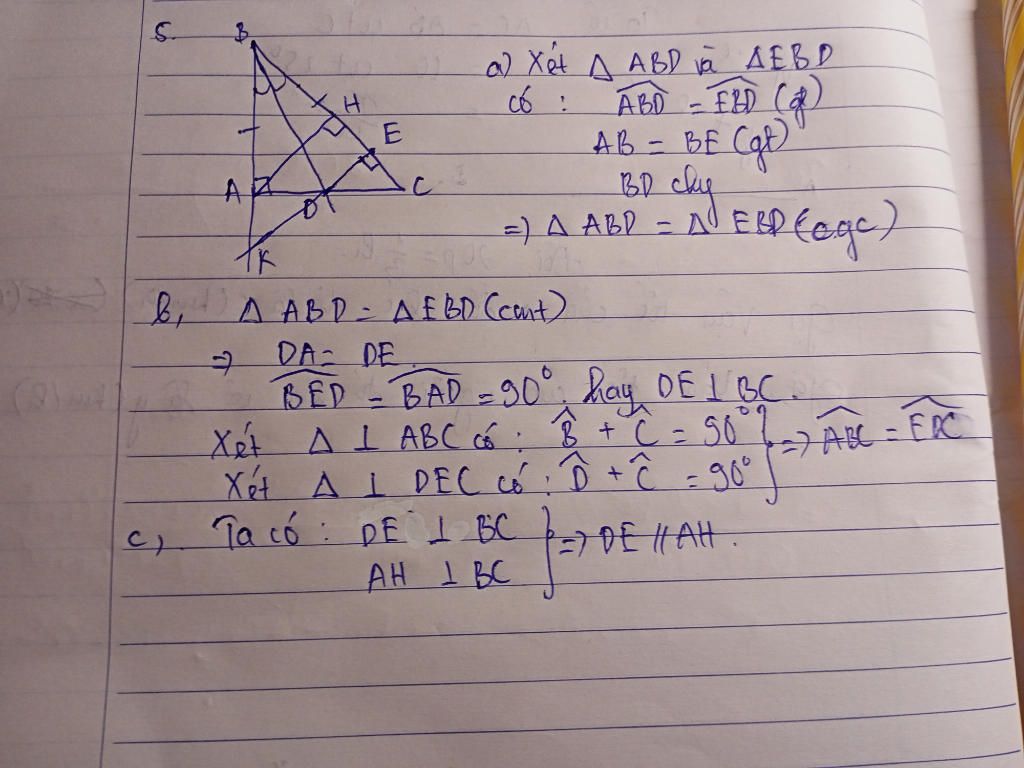 5.
B
H
E
A
D
C
K
a) Xét Δ ABD và ΔEBD
có : ABD = EBD (gt)
AB = BE (gt)
BD chg
=) Δ ABD = Δ EBD (cgc)
b, Δ ABD = ΔEBD (cmt)
=> DA = DE.
BED = BAD = 90° hay DE ⊥ BC.
Xét Δ ⊥ ABC có : B̂ + Ĉ = 90° } => ABC = EDC
Xét Δ ⊥ DEC có : D̂ + Ĉ = 90°
c, Ta có : DE ⊥ BC } => DE // AH.
AH ⊥ BC